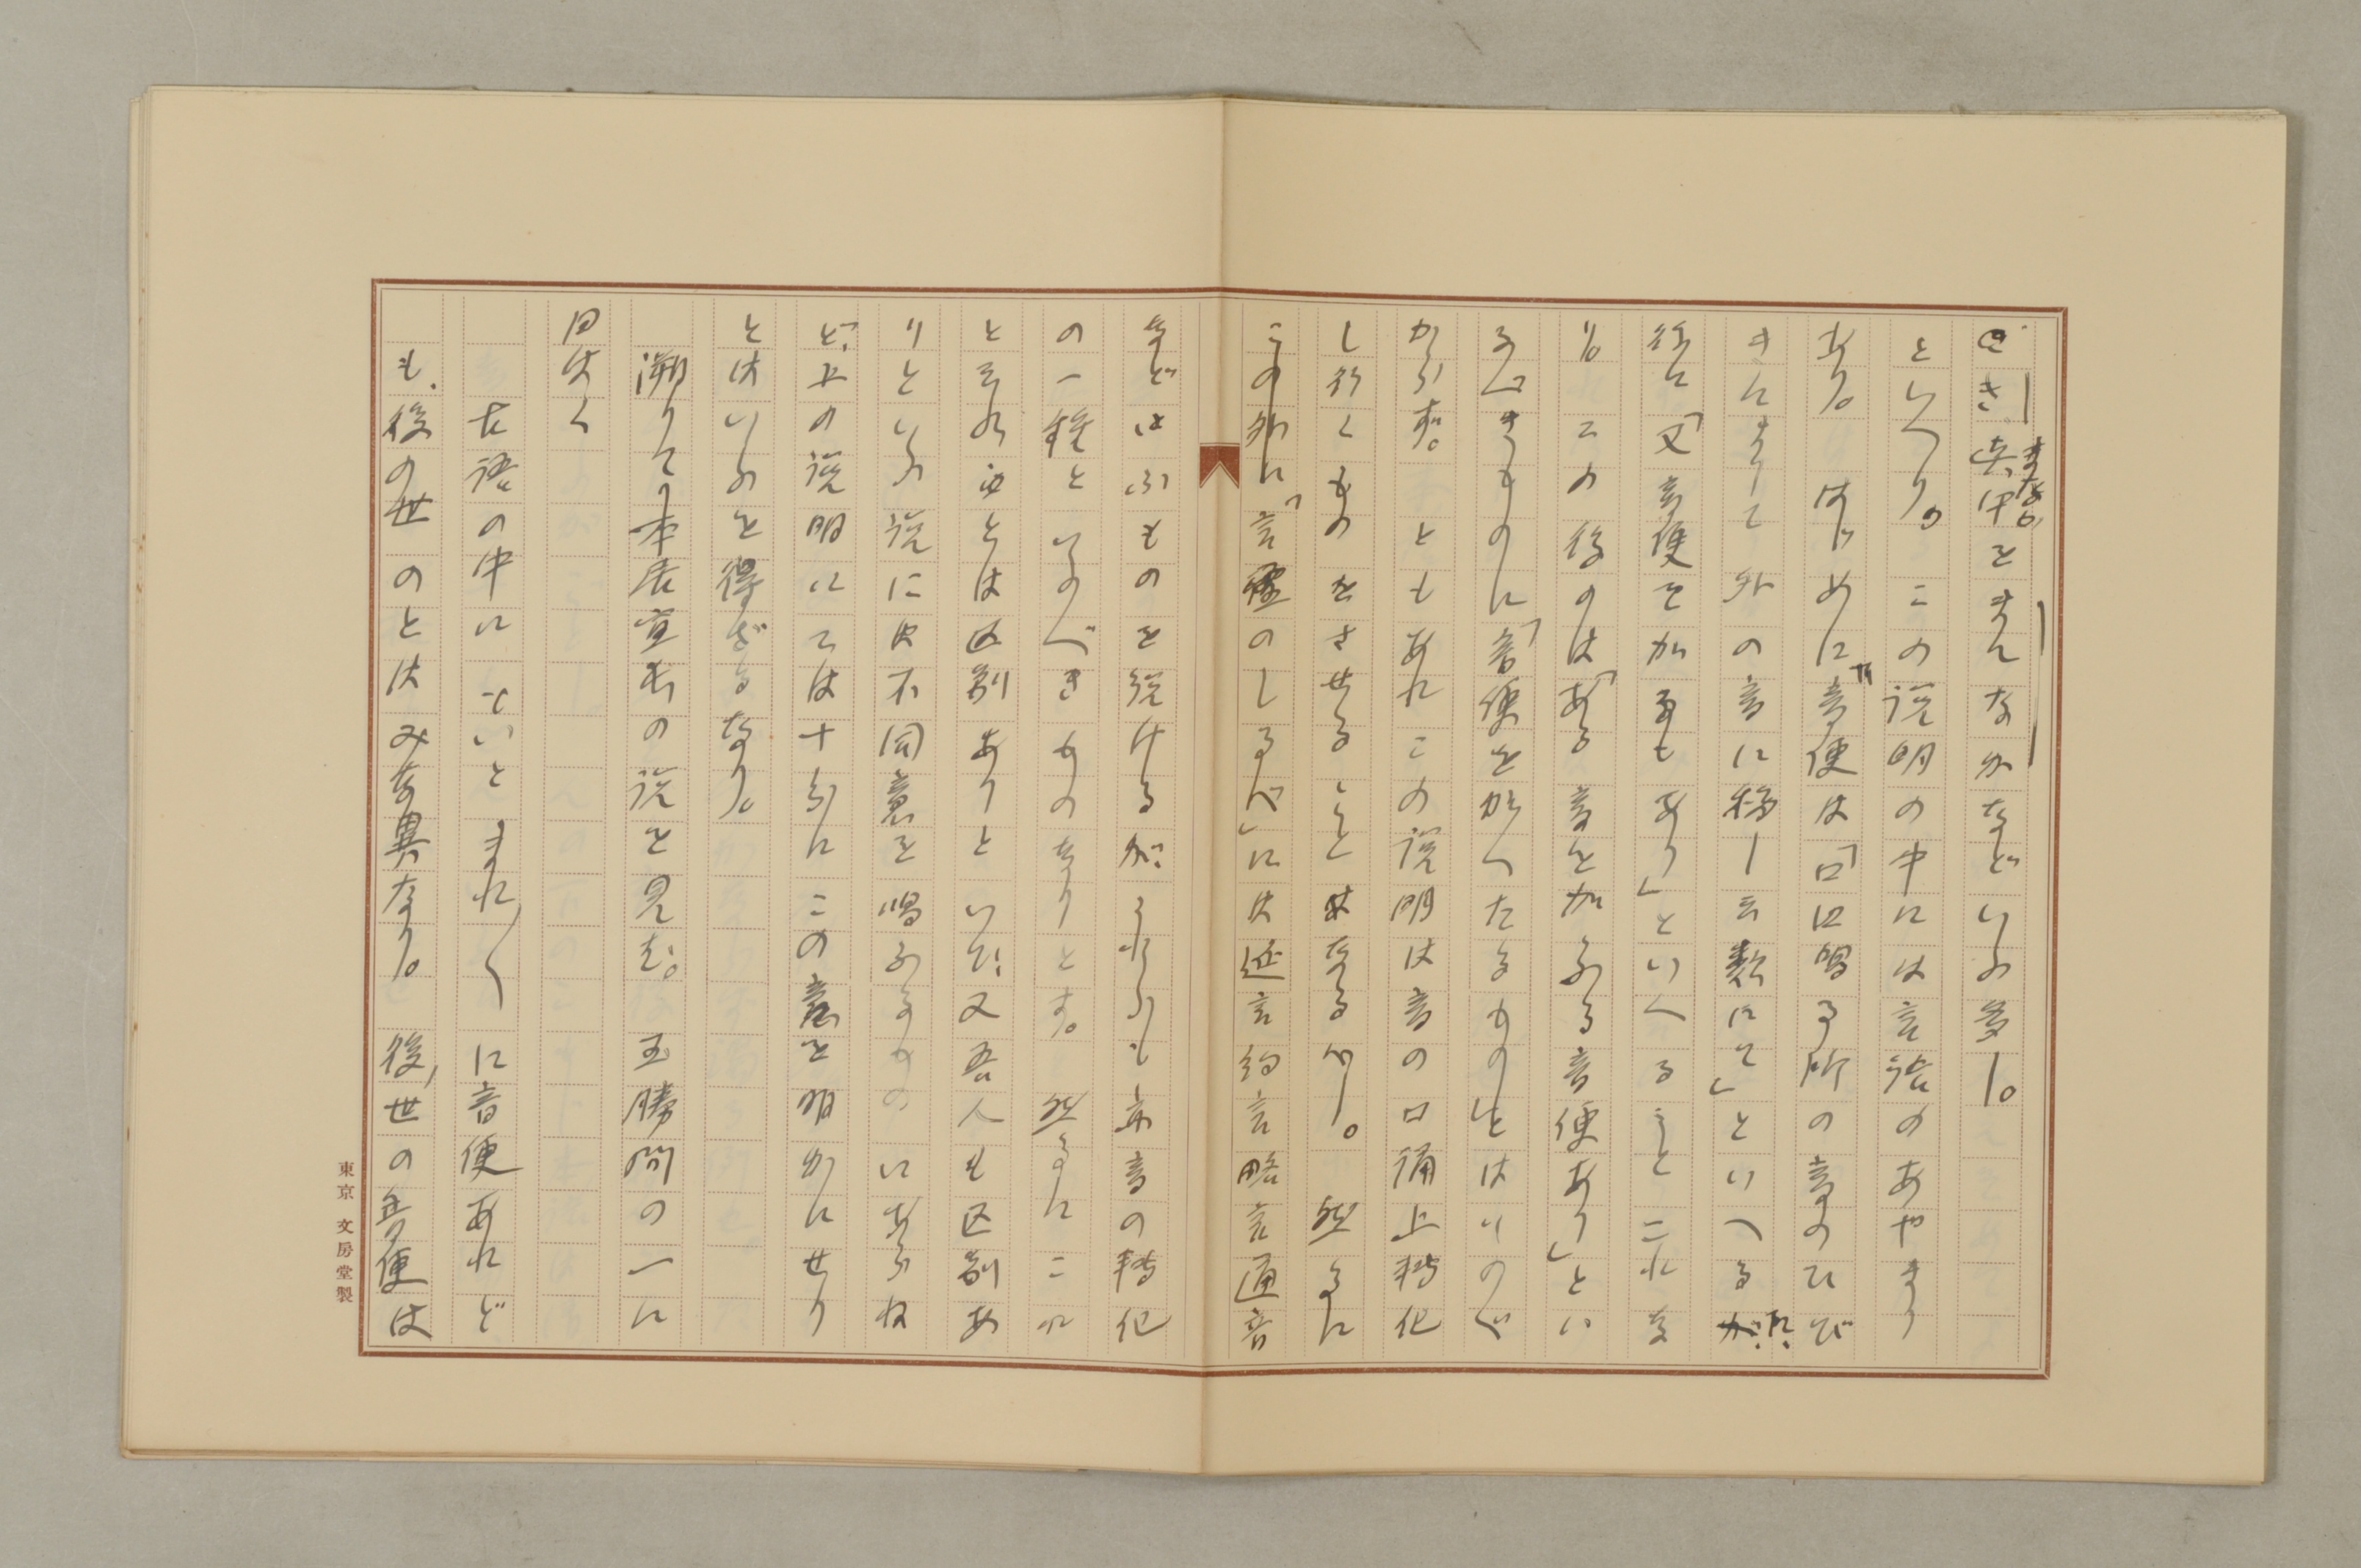 ざき 真中をまんなかなどいふ多し。
まなか
といへり。この説明の中には言語のあやまり
あり。はじめに「音便は「口に唱る所の音のひび
きによりて外の音に移し云類にて」といへるに、
後に「又音便をかるもあり」といへること これな
り。この後のは「ある音を加ふる音便あり」とい
ふべきものに「音便を加へたるもの」とはいひのべ
からず。ともあれこの説明は音の口誦上転化
し行くものをさせることは なるべし。然るに
この外に「言霊のしるべ」には延言約言略言通音
などいふものを説けるが、それらも亦音の転化
の一種といふべきものなりとす。然るにこれ
と それらとは区別ありといひ、又吾人も区別あ
りといふ説には不同意を唱ふるものにあらね
ど、上の説明にては十分にこの意を明かにせり
とはいふを得ざるなり。
溯りて本居宣長の説を見む。玉勝間の一に
曰はく
古語の中に、いといとまれ〱に音便あれど
も、後の世のとはみな異なり。後、世の音便は
東京 文房堂製